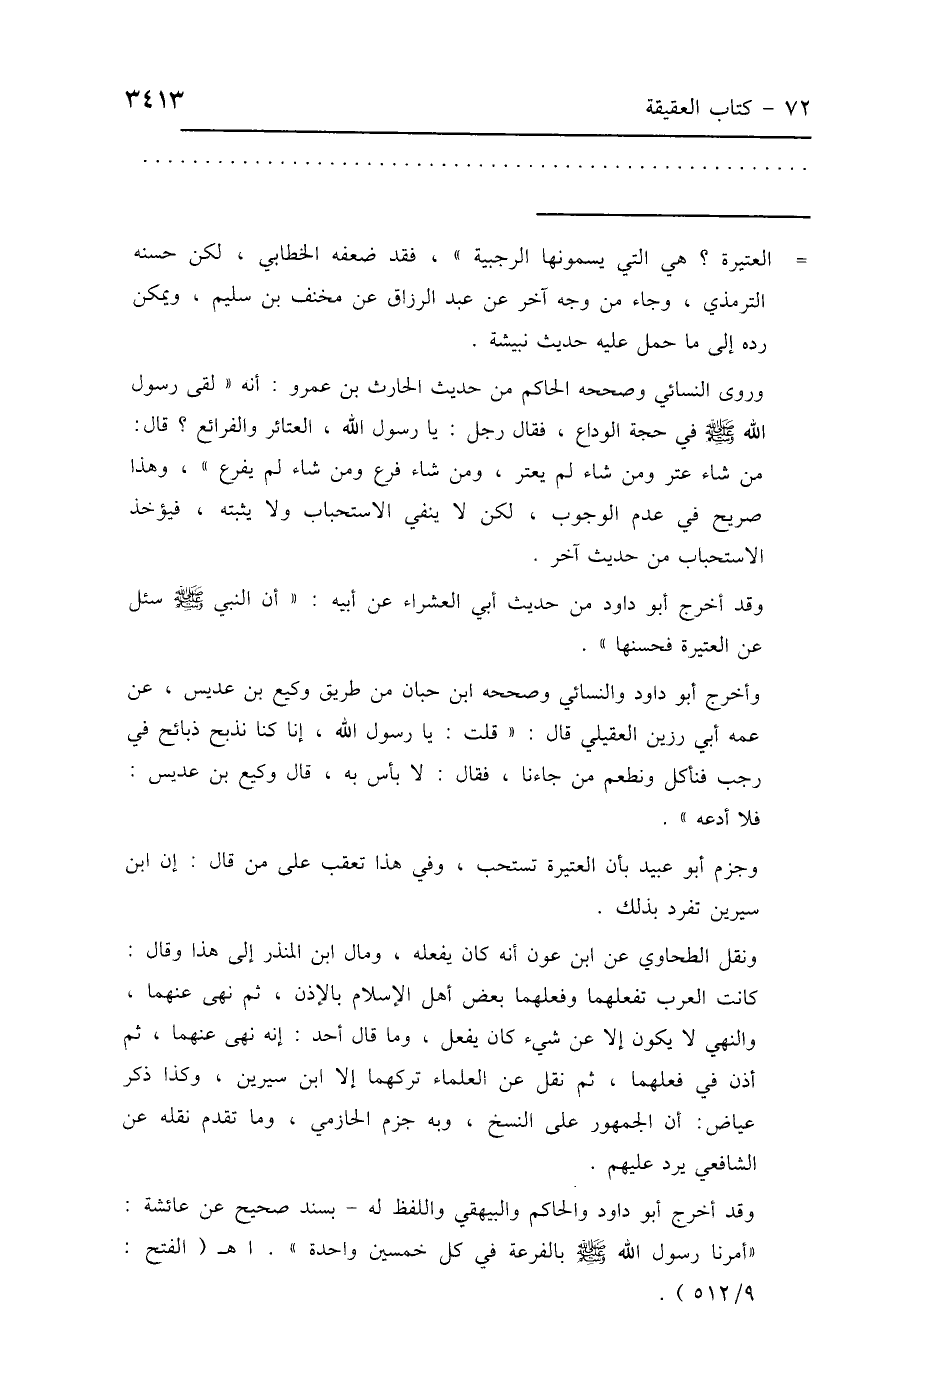 ٧٢ – كتاب العقيقة ٣٤١٣
= العتيرة ؟ هي التي يسمونها الرجبية » ، فقد ضعفه الخطابي ، لكن حسنه
الترمذي ، وجاء من وجه آخر عن عبد الرزاق عن مخنف بن سليم ، ويمكن
رده إلى ما حمل عليه حديث نبيشة .
وروى النسائي وصححه الحاكم من حديث الحارث بن عمرو : أنه « لقى رسول
الله ﷺ في حجة الوداع ، فقال رجل : يا رسول الله ، العتائر والفرائع ؟ قال:
من شاء عتر ومن شاء لم يعتر ، ومن شاء فرع ومن شاء لم يفرع » ، وهذا
صريح في عدم الوجوب ، لكن لا ينفي الاستحباب ولا يثبته ، فيؤخذ
الاستحباب من حديث آخر .
وقد أخرج أبو داود من حديث أبي العشراء عن أبيه : « أن النبي ﷺ سئل
عن العتيرة فحسنها » .
وأخرج أبو داود والنسائي وصححه ابن حبان من طريق وكيع بن عديس ، عن
عمه أبي رزين العقيلي قال : « قلت : يا رسول الله ، إنا كنا نذبح ذبائح في
رجب فنأكل ونطعم من جاءنا ، فقال : لا بأس به ، قال وكيع بن عديس :
فلا أدعه » .
وجزم أبو عبيد بأن العتيرة تستحب ، وفي هذا تعقب على من قال : إن ابن
سيرين تفرد بذلك .
ونقل الطحاوي عن ابن عون أنه كان يفعله ، ومال ابن المنذر إلى هذا وقال :
كانت العرب تفعلهما وفعلهما بعض أهل الإسلام بالإذن ، ثم نهى عنهما ،
والنهي لا يكون إلا عن شيء كان يفعل ، وما قال أحد : إنه نهى عنهما ، ثم
أذن في فعلهما ، ثم نقل عن العلماء تركهما إلا ابن سيرين ، وكذا ذكر
عياض: أن الجمهور على النسخ ، وبه جزم الحازمي ، وما تقدم نقله عن
الشافعي يرد عليهم .
وقد أخرج أبو داود والحاكم والبيهقي واللفظ له – بسند صحيح عن عائشة :
«أمرنا رسول الله ﷺ بالفرعة في كل خمسين واحدة » . ا هـ ( الفتح :
٥١٢/٩ ) .